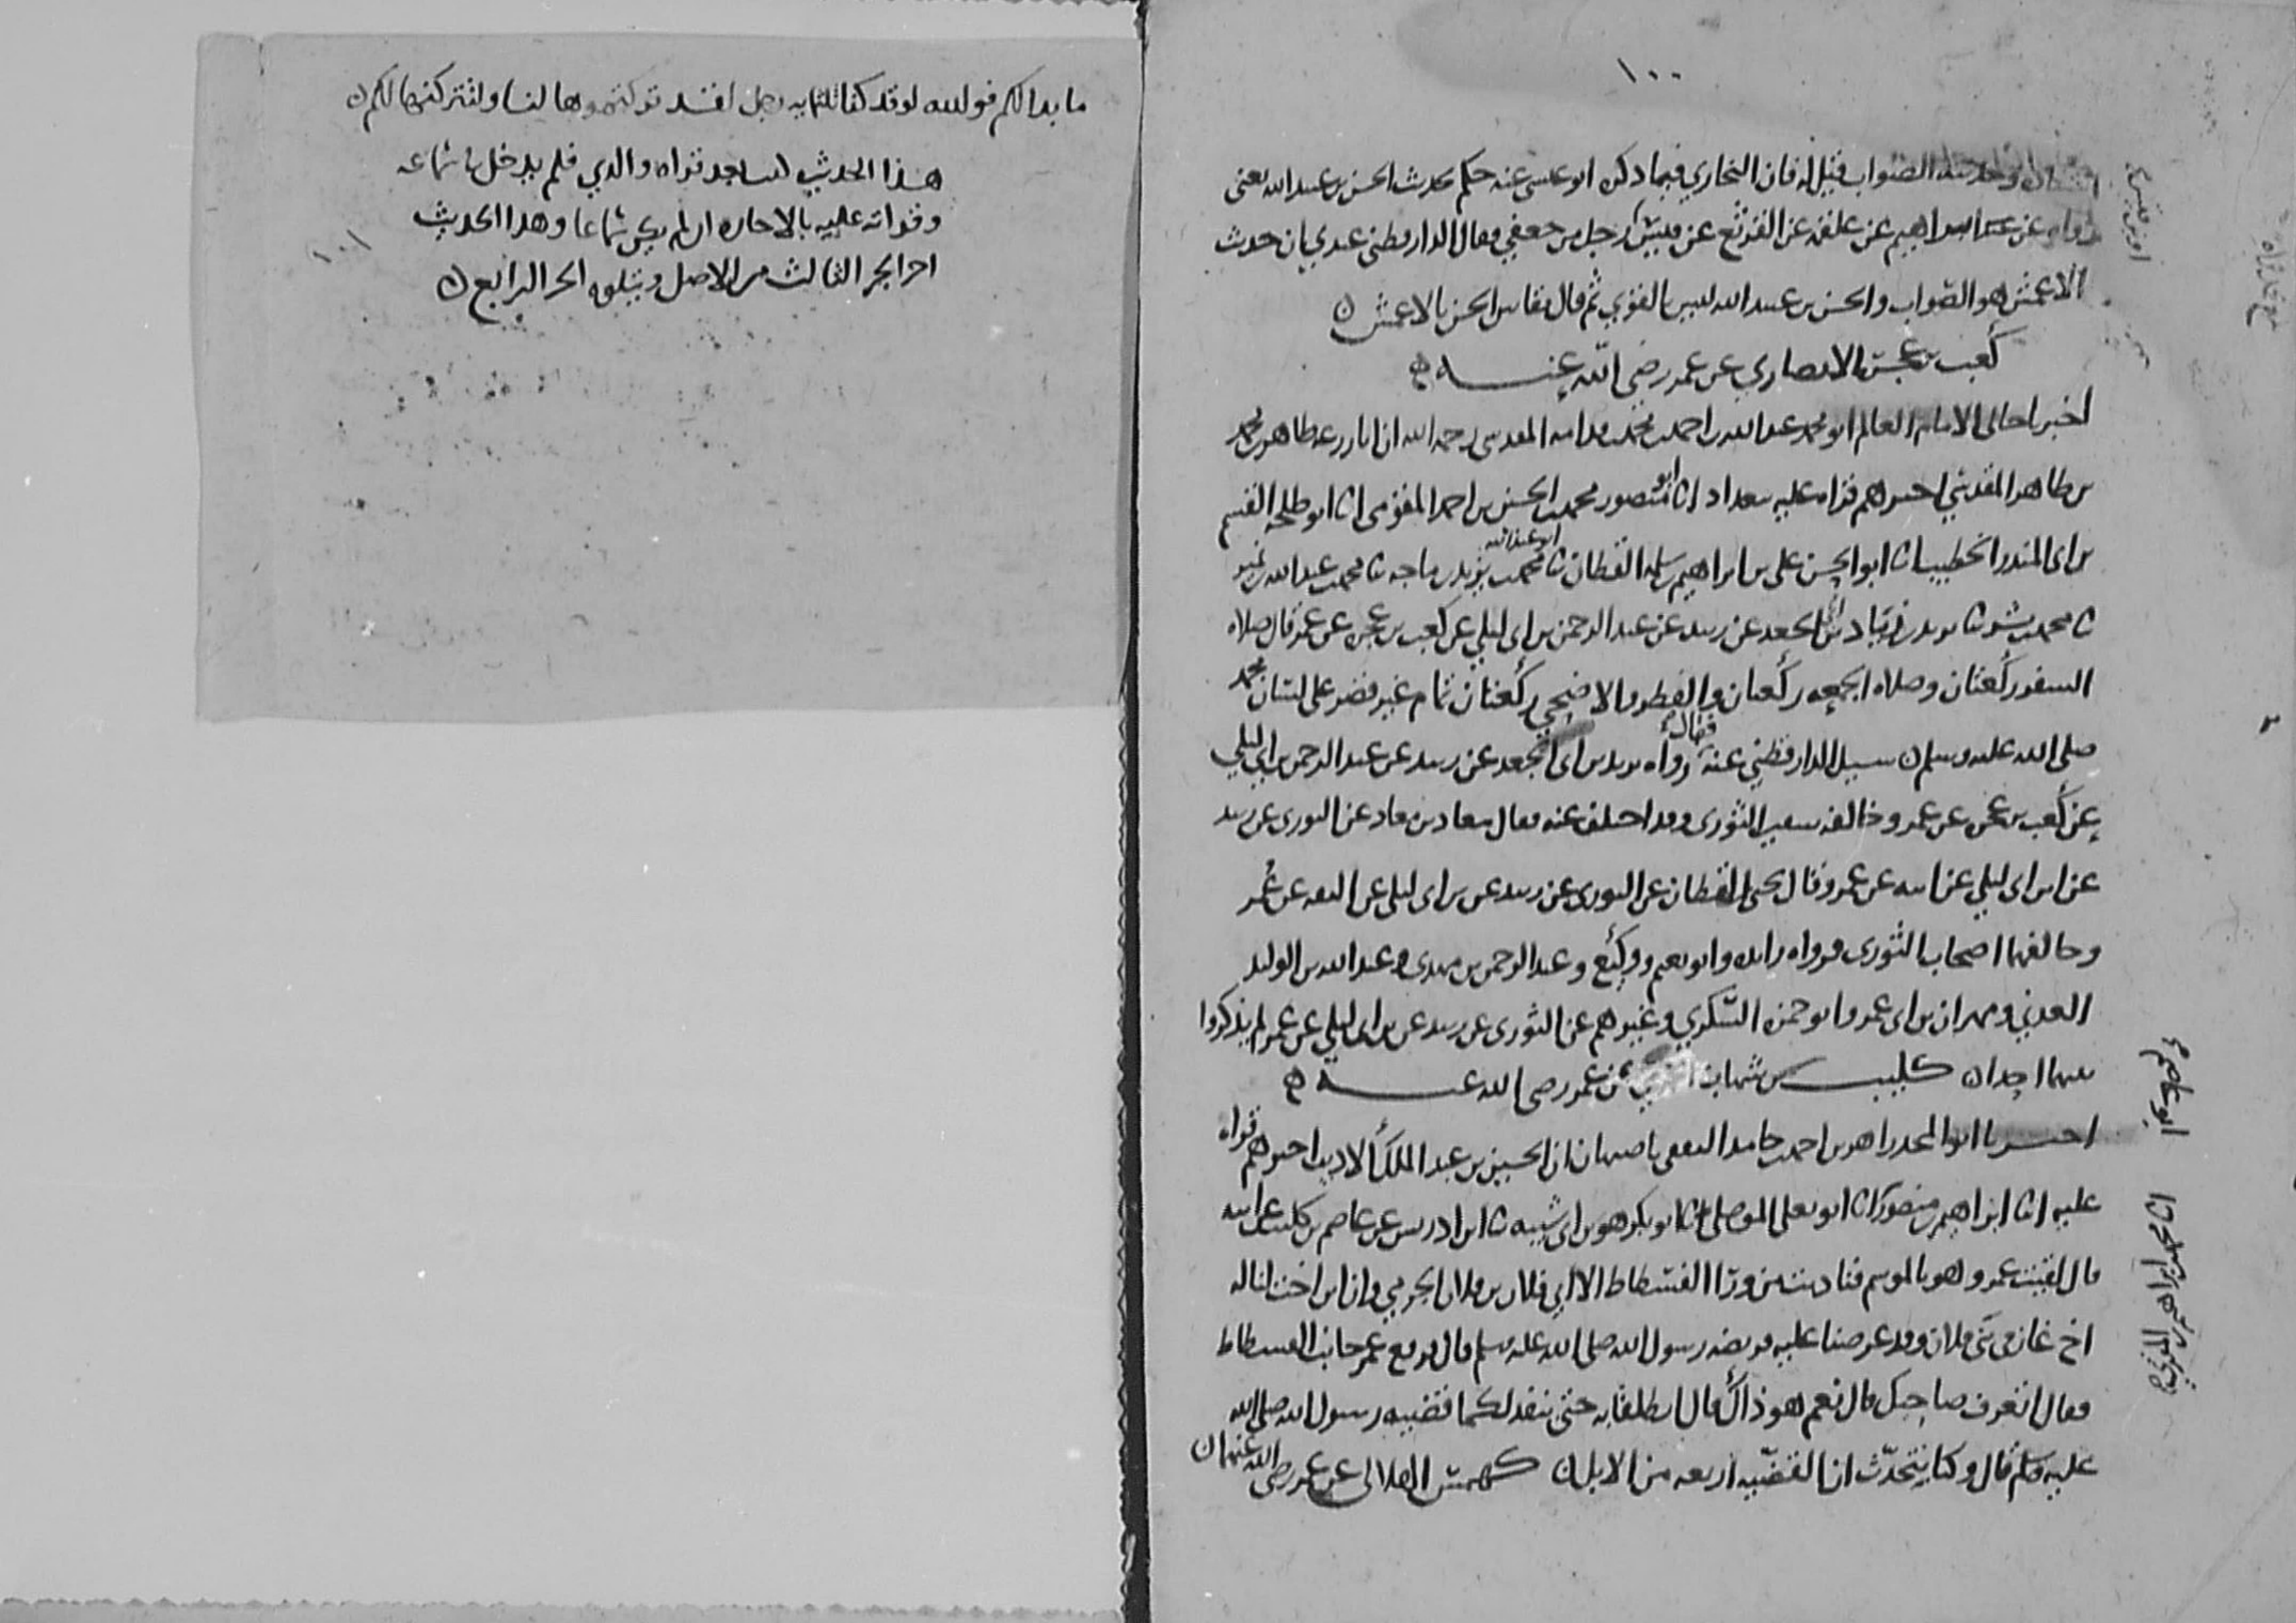 ١٠٠
وحديثه الصواب قيل له فان البخاري فيما ذكره ابو عيسى عنه حكم بحديث الحسن بن عبيد الله يعني
عن ابراهيم عن علقمه عن القرثع عن قيس رجل من جعفي فقال الدارقطني عندي ان حديث
الاعمش هو الصواب والحسن بن عبيد الله ليس بالقوي ثم قال يقاس الحسن بالاعمش
كعب بن عجرة الانصاري عن عمر رضي الله عنه
اخبرنا خالي الامام العالم ابو محمد عبد الله بن احمد بن محمد بن قدامه المقدسي رحمه الله ان ابا زرعه طاهر بن محمد
بن طاهر المقدسي اخبرهم قراه عليه ببغداد انا ابو منصور محمد بن الحسين بن احمد المقومي انا ابو طلحه القسم
بن ابي المنذر الخطيب انا ابو الحسن علي بن ابراهيم بن سلمه القطان ثنا ابو عبد الله محمد بن يزيد بن ماجه ثنا محمد بن عبد الله بن نمير
ثنا محمد بن بشر ثنا يزيد بن زياد بن ابي الجعد عن زبيد عن عبد الرحمن بن ابي ليلي عن كعب بن عجره عن عمر قال صلاه
السفر ركعتان وصلاه الجمعه ركعتان والفطر والاضحي ركعتان تمام غير قصر على لسان محمد
صلى الله عليه وسلم سيل الدارقطني عنه فقال رواه يزيد بن ابي الجعد عن زبيد عن عبد الرحمن بن ابي ليلي
عن كعب بن عجره عن عمر وخالفه سفين الثوري وقد اختلف عنه فقال معاذ بن معاذ عن الثوري عن زبيد
عن ابن ابي ليلي عن ابيه عن عمر وقال يحيى القطان عن الثوري عن زبيد عن بن ابي ليلى عن الثقه عن عمر
وخالفهما اصحاب الثوري فرواه زايده وابو نعيم ووكيع وعبد الرحمن بن مهدي وعبد الله بن الوليد
العدني ومهران بن ابي عمر وابو حمزه السكري وغيرهم عن الثوري عن زبيد عن بن ابي ليلي عن عمر لم يذكروا
بينهما احدا كليب بن شهاب عن عمر رضي الله عنه
اخبرنا ابو المجد زاهر بن احمد بن حامد الثقفي باصبهان ان الحسين بن عبد الملك الاديب اخبرهم قراه
عليه انا ابراهيم بن منصور انا ابو يعلى الموصلي ثنا ابو بكر هو بن ابي شيبه ثنا ابن ادريس عن عاصم بن كليب عن ابيه
قال لقيت عمر وهو بالموسم فناديت من ورا الفسطاط الا اني فلان بن فلان الجرمي وان ابن اخت لنا له
اخ غاز في بني فلان وقد عرضنا عليه فريضه رسول الله صلى الله عليه وسلم قال فرفع عمر جانب الفسطاط
فقال اتعرف صاحبك قال نعم هو ذاك قال انطلقا به حتى ينفذ لكما قضيه رسول الله صلى الله
عليه وسلم قال وكنا نتحدث ان القضيه اربعه من الابل كهمس الهلالي عن عمر رضي الله عنهما
ما بدا لكم فوالله لو قد كنا ثلثمايه رجل لقد تركتموها لنا ولتركناها لكم
هذا الحديث قراه والدي فلم يدخل في سماعه
وقراته عليه بالاجازه ان لم يكن سماعا وهذا الحديث
اخر الجز الثالث من الاصل ويتلوه الجز الرابع
١٠١